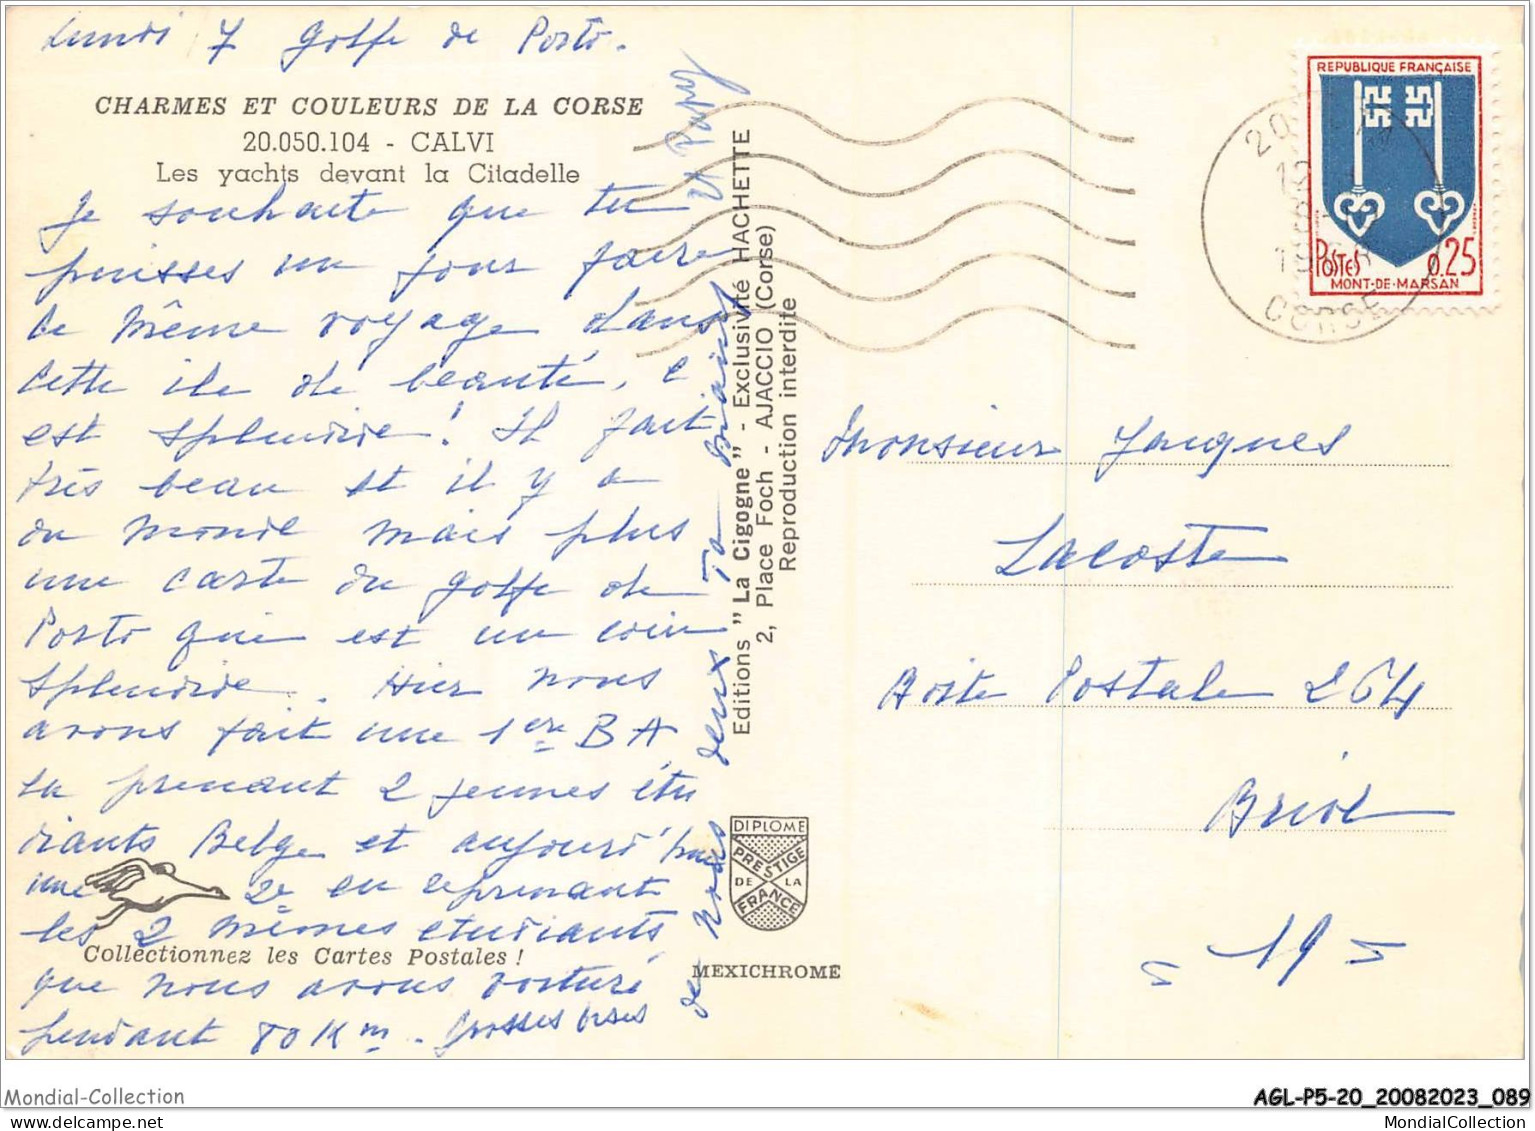 Lundi 7 Golfe de Porto.
CHARMES ET COULEURS DE LA CORSE
20.050.104 - CALVI
Les yachts devant la Citadelle
Je souhaite que tu
puisses un jour faire
le même voyage dans
cette ile de beauté, c
est splendide! Il fait
très beau et il y a
du monde mais plus
une carte du golfe de
Porto qui est un coin
splendide. Hier nous
avons fait une 1ère BA
en prenant 2 jeunes étu
diants Belge et aujourd'hui
une 2e en reprenant
les 2 mêmes etudiants
que nous avons voituré
pendant 80 Km. Grosses bises
de nous deux Ta
et Papy
Collectionnez les Cartes Postales !
Editions "La Cigogne" - Exclusivité HACHETTE
2, Place Foch - AJACCIO (Corse)
Reproduction interdite
DIPLOME
PRESTIGE
DE LA
FRANCE
MEXICHROME
REPUBLIQUE FRANÇAISE
POSTES 0.25
MONT-DE-MARSAN
20
CORSE
Monsieur Jacques
Lacoste
Boite Postale 264
Brive
- 19 -
Mondial-Collection
AGL-P5-20_20082023_089
MondialCollection